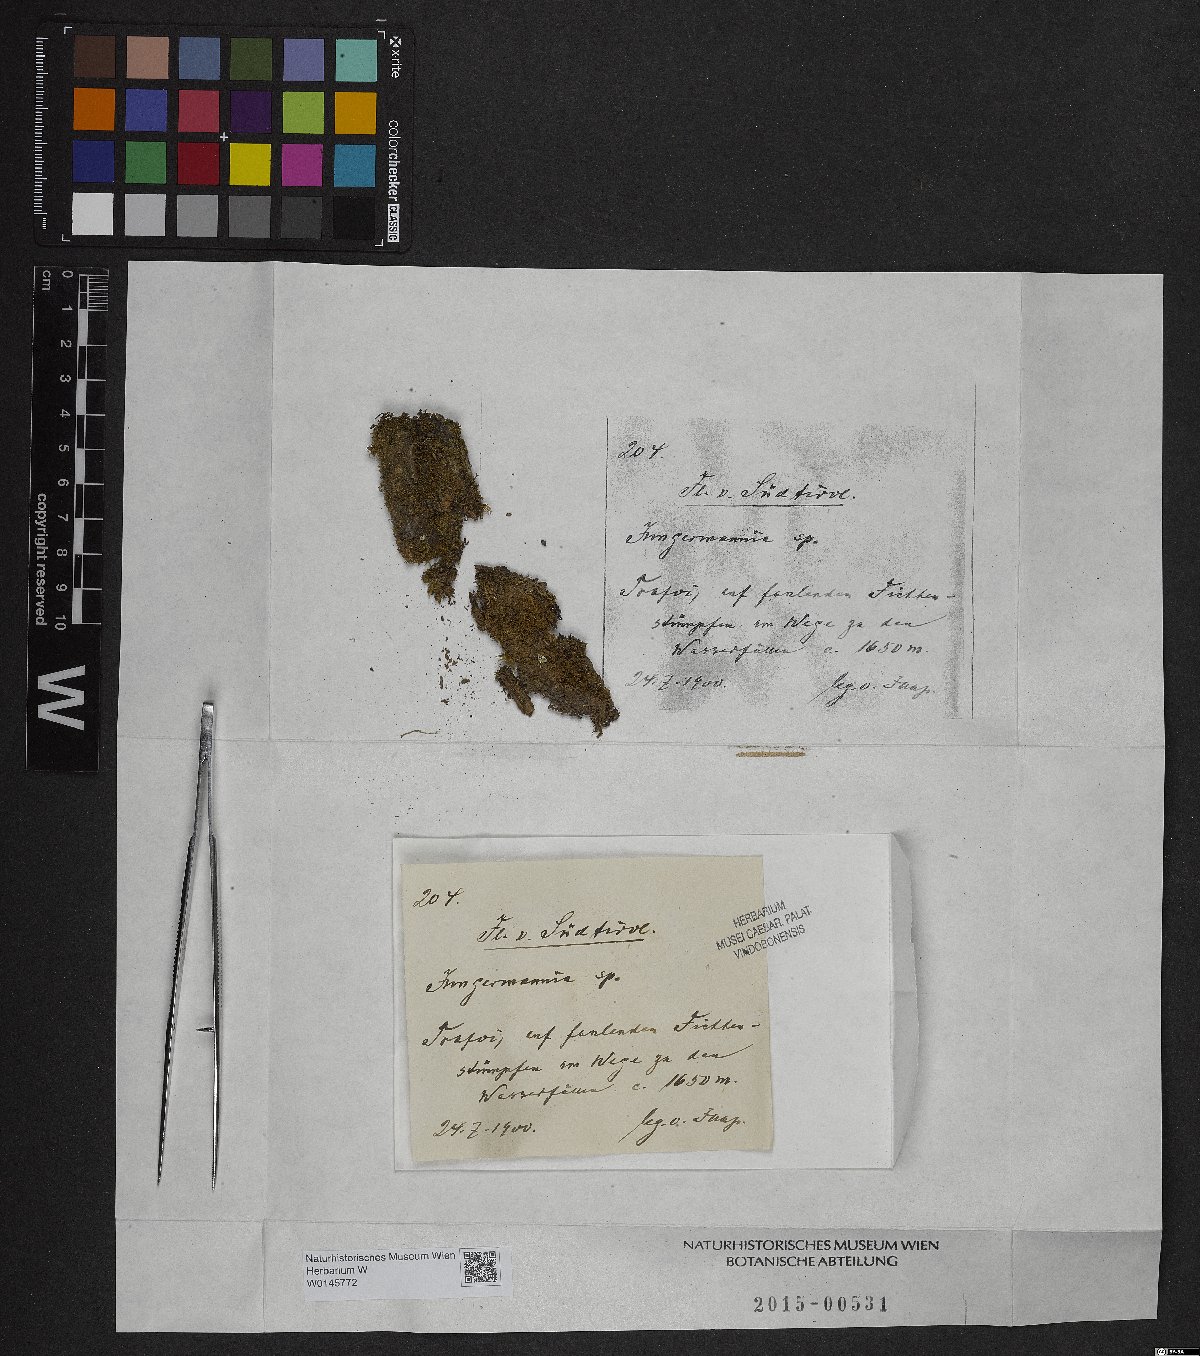 x-rite
colorchecker CLASSIC
0 1 2 3 4 5 6 7 8 9 10
cm
copyright reserved
W
204.
Fl. v. Südtirol.
Jungermannia sp.
Trafoi, auf faulenden Fichten-
stümpfen am Wege zu den
Wasserfällen c. 1650 m.
24.7.1900. leg. O. Jaap.
204.
Fl. v. Südtirol.
Jungermannia sp.
Trafoi, auf faulenden Fichten-
stümpfen am Wege zu den
Wasserfällen c. 1650 m.
24.7.1900. leg. O. Jaap.
HERBARIUM
MUSEI CAESAR. PALAT.
VINDOBONENSIS
Naturhistorisches Museum Wien
Herbarium W
W0145772
NATURHISTORISCHES MUSEUM WIEN
BOTANISCHE ABTEILUNG
2015-00531